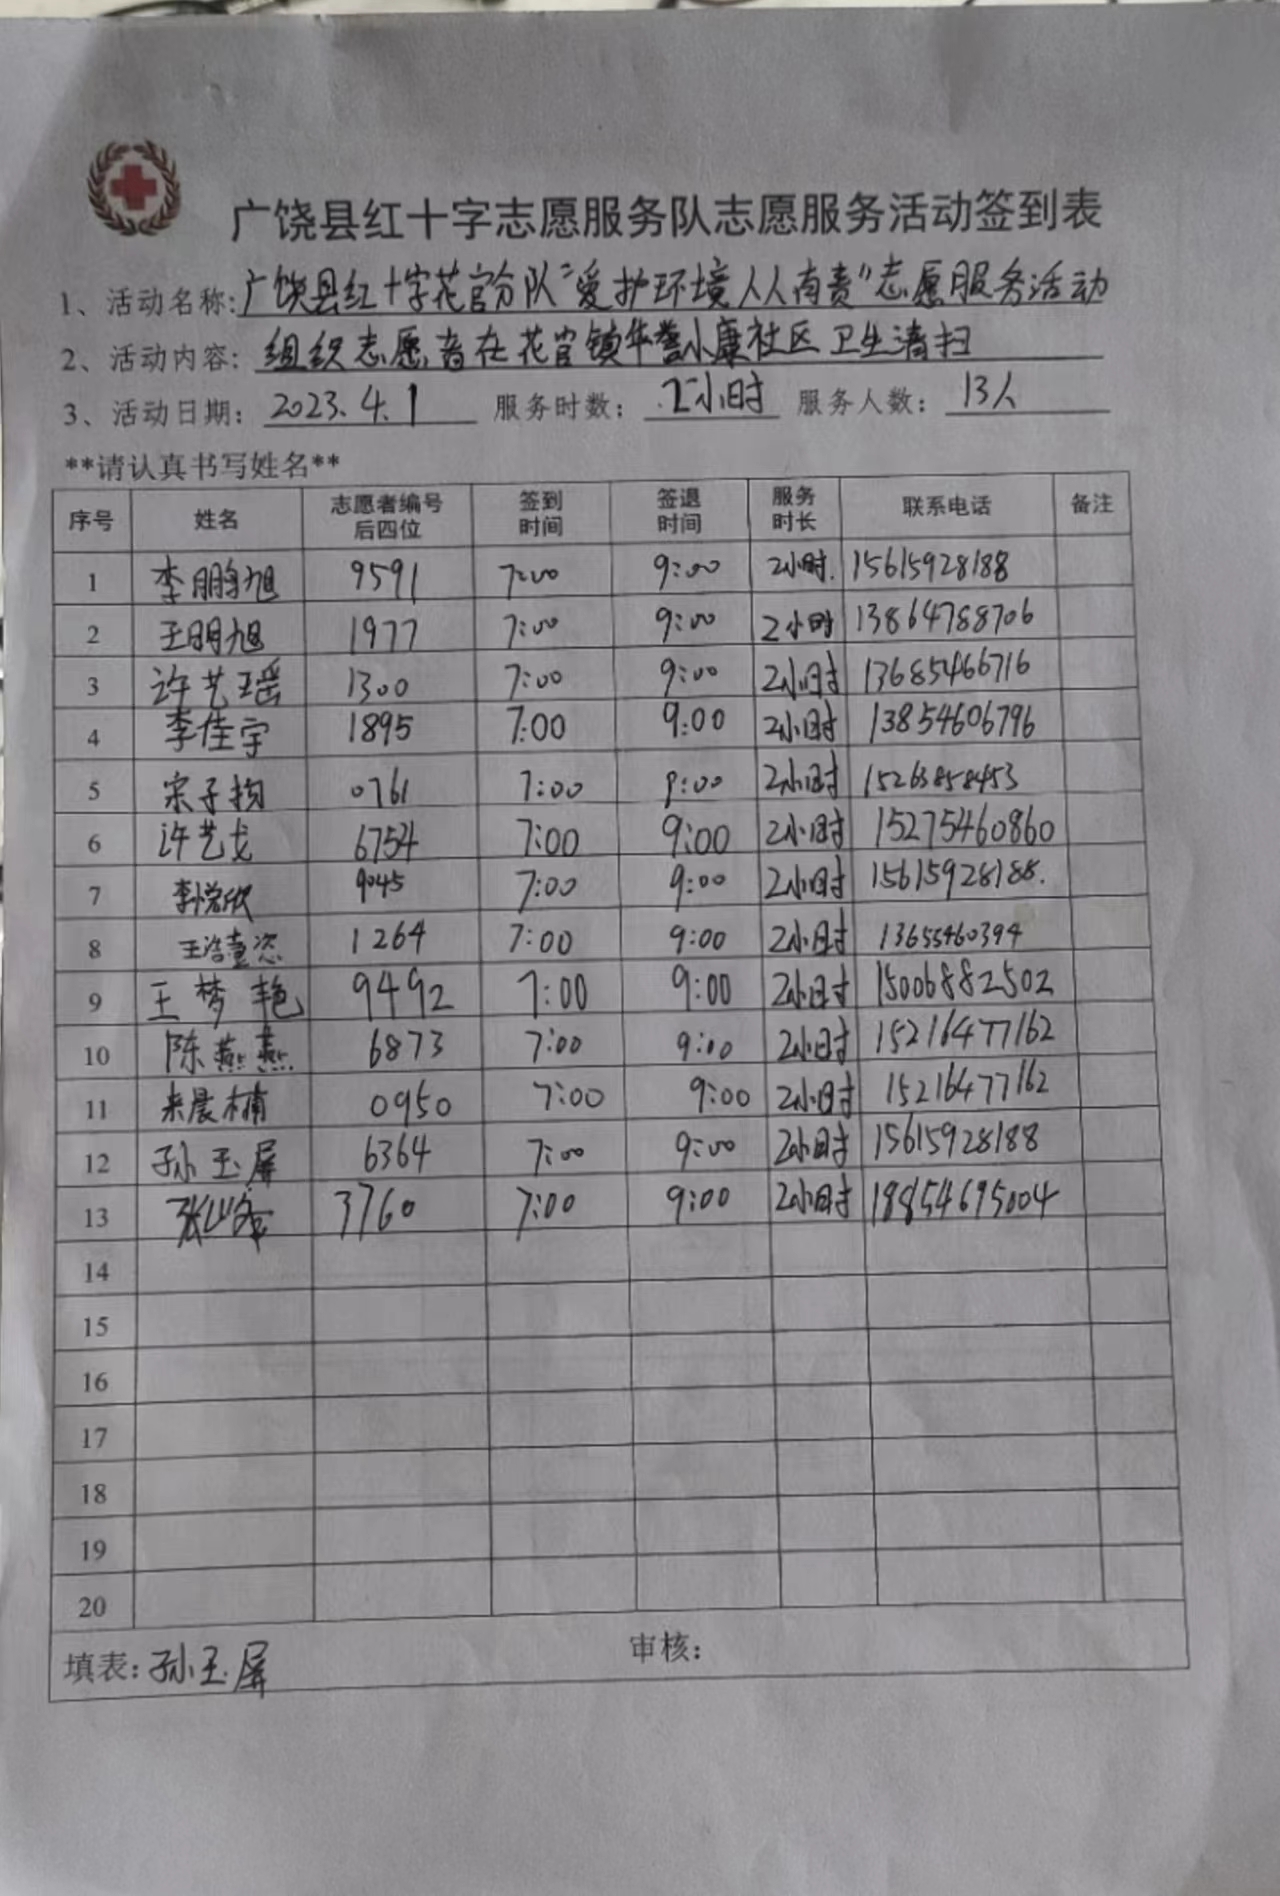 广饶县红十字志愿服务队志愿服务活动签到表
1、活动名称:广饶县红十字花官分队“爱护环境人人有责”志愿服务活动
2、活动内容:组织志愿者在花官镇华誉小康社区卫生清扫
3、活动日期:2023.4.1 服务时数:2小时 服务人数:13人
**请认真书写姓名**
序号 姓名 志愿者编号后四位 签到时间 签退时间 服务时长 联系电话 备注
1 李鹏旭 9591 7:00 9:00 2小时. 15615928188
2 王明旭 1977 7:00 9:00 2小时 13864788706
3 许艺瑶 1300 7:00 9:00 2小时 13685466716
4 李佳宇 1895 7:00 9:00 2小时 13854606796
5 宋子 0761 7:00 9:00 2小时 15263858453
6 许艺戈 6754 7:00 9:00 2小时 15275460860
7 李悦欣 9045 7:00 9:00 2小时 15615928188.
8 王浩 1264 7:00 9:00 2小时 13655460394
9 王梦艳 9492 7:00 9:00 2小时 15006882502
10 陈燕燕 6873 7:00 9:00 2小时 15216477162
11 来晨楠 0950 7:00 9:00 2小时 15216477162
12 孙玉屏 6364 7:00 9:00 2小时 15615928188
13 张 3760 7:00 9:00 2小时 18854695004
14
15
16
17
18
19
20
填表:孙玉屏 审核: